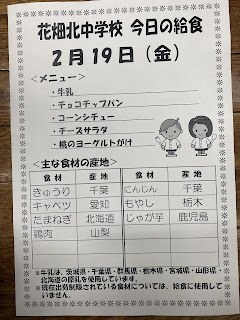 花畑北中学校 今日の給食
2月19日(金)
＜メニュー＞
・牛乳
・チョコチップパン
・コーンシチュー
・チーズサラダ
・桃のヨーグルトがけ
＜主な食材の産地＞
食材 産地 食材 産地
きゅうり 千葉 にんじん 千葉
キャベツ 愛知 もやし 栃木
たまねぎ 北海道 じゃが芋 鹿児島
鶏肉 山梨
※牛乳は、茨城県・千葉県・群馬県・栃木県・宮城県・山形県・
北海道の原乳を使用しています。
※現在出荷制限されている食材については、給食に使用して
いません。